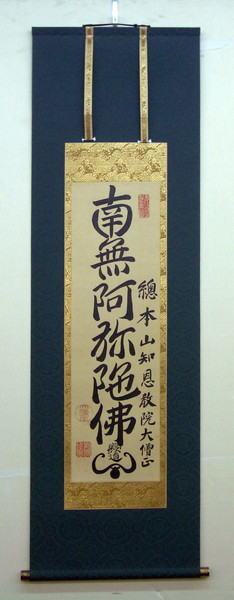 南無阿弥陀佛
總本山知恩教院大僧正